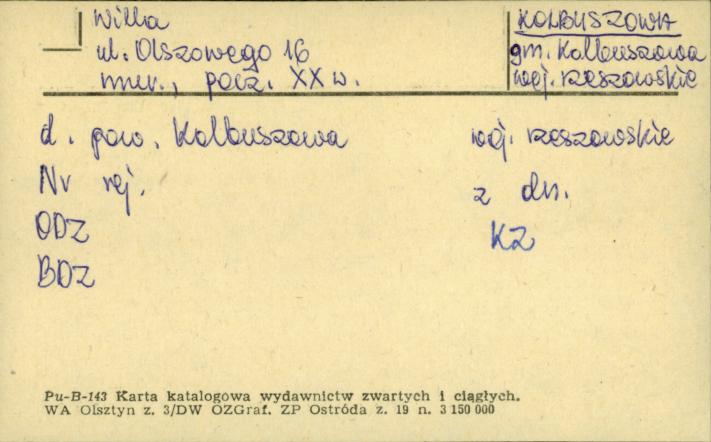 Willa
ul. Olszowego 16
mur., pocz. XX w.
KOLBUSZOWA
gm. Kolbuszowa
woj. rzeszowskie
d. pow. Kolbuszowa
woj. rzeszowskie
Nr rej.
z dn.
ODZ
KZ
BDZ
Pu-B-143 Karta katalogowa wydawnictw zwartych i ciągłych.
WA Olsztyn z. 3/DW OZGraf. ZP Ostróda z. 19 n. 3 150 000